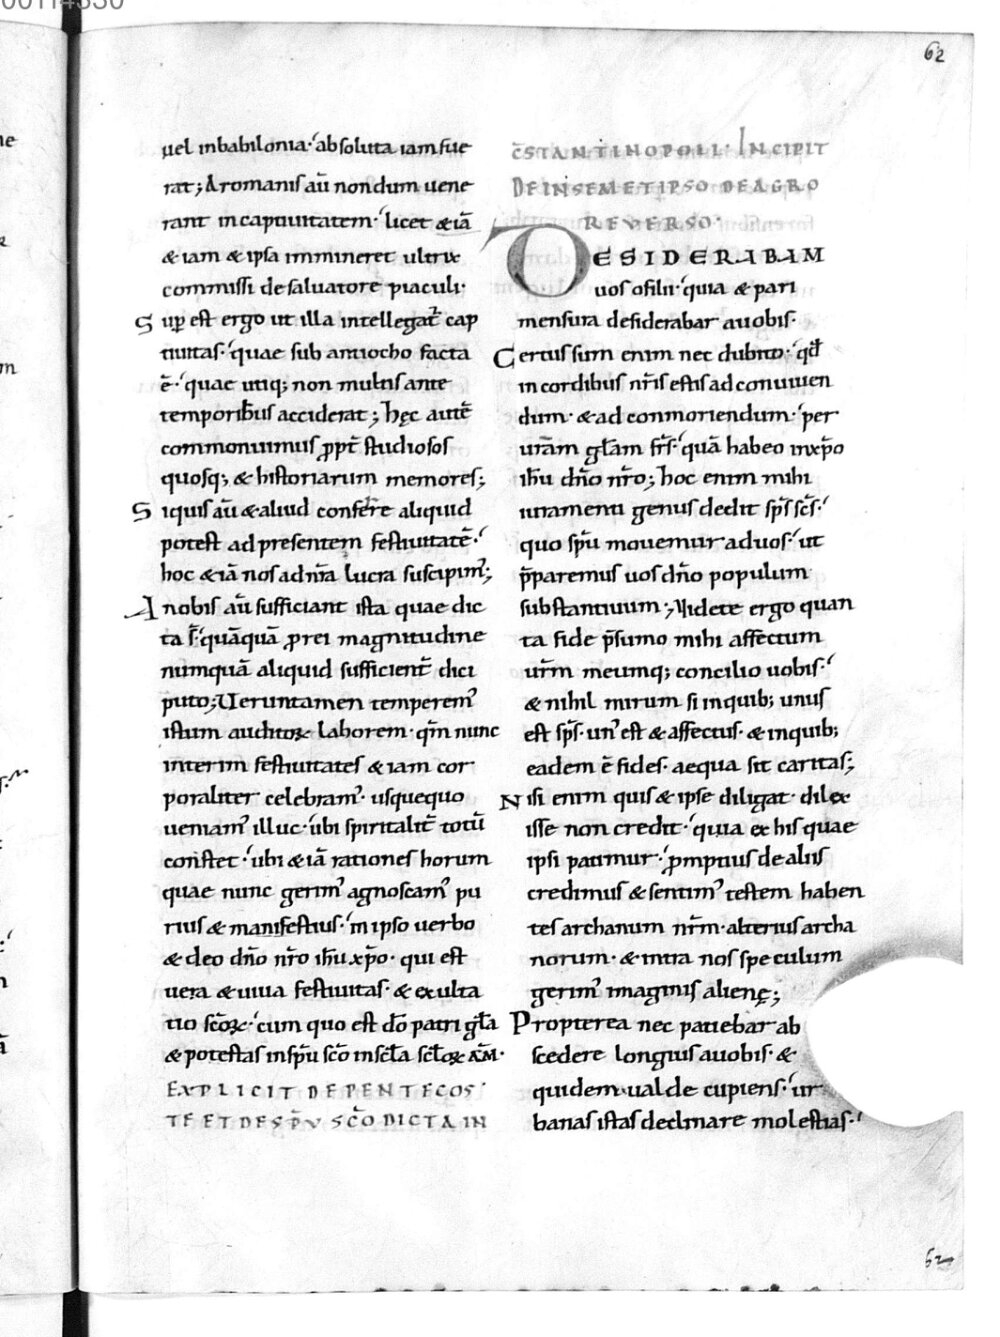 62
uel inbabilonia· absoluta iam fue
rat; A romanis aū nondum uene
rant incaptiuitatem· licet &iā
&iam &ipsa immineret ultrix
commissi desaluatore piaculi·
Sup̱ est ergo ut illa intellegat̄ cap
tiuitas· quae sub antiocho facta
ē· quae utiq; non multis ante
temporib; acciderat; hęc autē
commonuimus ꝓpt̄ studiosos
quosq; & historiarum memores;
Siquis aū &aliud conferre aliquid
potest adpresentem festiuitatē·
hoc &iā nos adnr̄a lucra suscipim';
Anobis aū sufficiant ista quae dic
ta s̄· quāquā ꝓrei magnitudine
numquā aliquid sufficient̄ dici
puto; Ueruntamen temperem'
istum auditoꝝ laborem· qm̄ nunc
interim festiuitates &iam cor
poraliter celebram'· usquequo
ueniam' illuc· ubi spiritalit̄ totū
constet· ubi &iā rationes horum
quae nunc gerim' agnoscam' pu
rius & manifestius· inipso uerbo
& deo dn̄o nr̄o ih̄u xp̄o· qui est
uera &uiua festiuitas· & exulta
tio sc̄oꝝ· cum quo est dō patri gl̄a
&potestas insp̄u sc̄o insc̄la sc̄loꝝ AM̄·
EXPLICIT DE PENTECOS
TE ET DE SP̄V SC̄O DICTA IN
C̄STANTINOPOLI· INCIPIT
DE INSEMETIPSO DE AGRO
REVERSO·
DESIDERABAM
uos ofilii· quia & pari
mensura desiderabar auobis·
Certus sum enim nec dubito· qd̄
incordibus nr̄is estis ad conuiuen
dum· &ad conmoriendum· per
uram gl̄am fr̄s· quā habeo inxp̄o
ih̄u dn̄o nr̄o; hoc enim mihi
iuramenti genus dedit sp̄s sc̄s·
quo sp̄u mouemur aduos· ut
p̄paremus uos dn̄o populum
substantiuum; Uidete ergo quan
ta fide p̄sumo mihi affectum
ur̄m meumq; concilio uobis·
& nihil mirum si inquib; unus
est sp̄s· un' est & affectus· & inquib;
eadem ē fides· aequa sit caritas;
Nisi enim quis & ipse diligat· dilex
isse non credit· quia ex his quae
ipsi patimur· ꝓmptius de aliis
credimus & sentim' testem haben
tes archanum nr̄m· alterius archa
norum· & intra nos speculum
gerim' imaginis alienę;
Propterea nec patiebar ab
scedere longius auobis· &
quidem ualde cupiens· ur
banas istas declinare molestias·
62